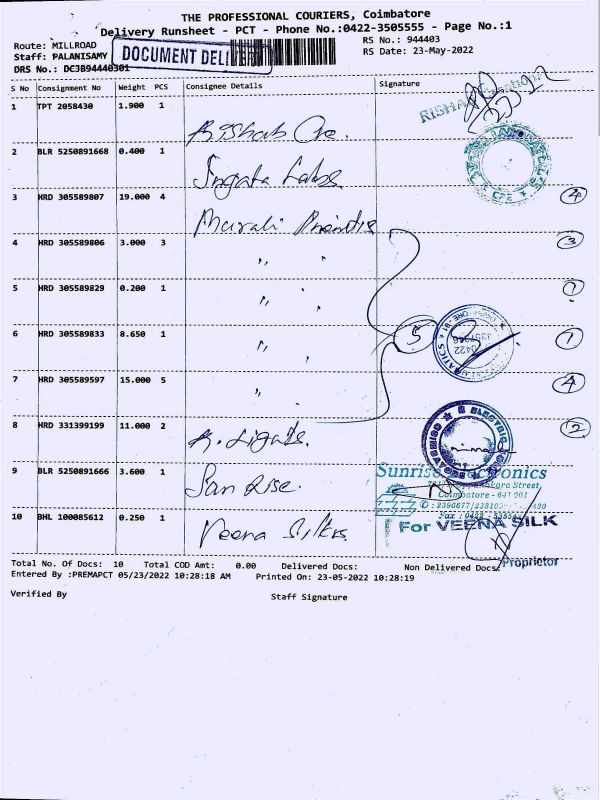 THE PROFESSIONAL COURIERS, Coimbatore
Delivery Runsheet - PCT - Phone No.:0422-3505555 - Page No.:1
Route: MILLROAD
RS No.: 944403
Staff: PALANISAMY
DOCUMENT DELIVERY
RS Date: 23-May-2022
DRS No.: DCJB94440301
S No Consignment No Weight PCS Consignee Details Signature
1 TPT 2058430 1.900 1
2 BLR 5250891668 0.400 1
3 HRD 305589807 19.000 4 Murali 4
4 HRD 305589806 3.000 3 " " 3
5 HRD 305589829 0.200 1 " " 1
6 HRD 305589833 8.650 1 " " 5 1
0422
7 HRD 305589597 15.000 5 " " 4
8 HRD 331399199 11.000 2 2
ELECTRIC
9 BLR 5250891666 3.600 1 Sun Rise.
Sunrise Electronics
Street,
Coimbatore - 641 001
10 BHL 100085612 0.250 1 Veena Silks
For VEENA SILK
Proprietor
Total No. Of Docs: 10 Total COD Amt: 0.00 Delivered Docs: Non Delivered Docs:
Entered By :PREMAPCT 05/23/2022 10:28:18 AM Printed On: 23-05-2022 10:28:19
Verified By Staff Signature